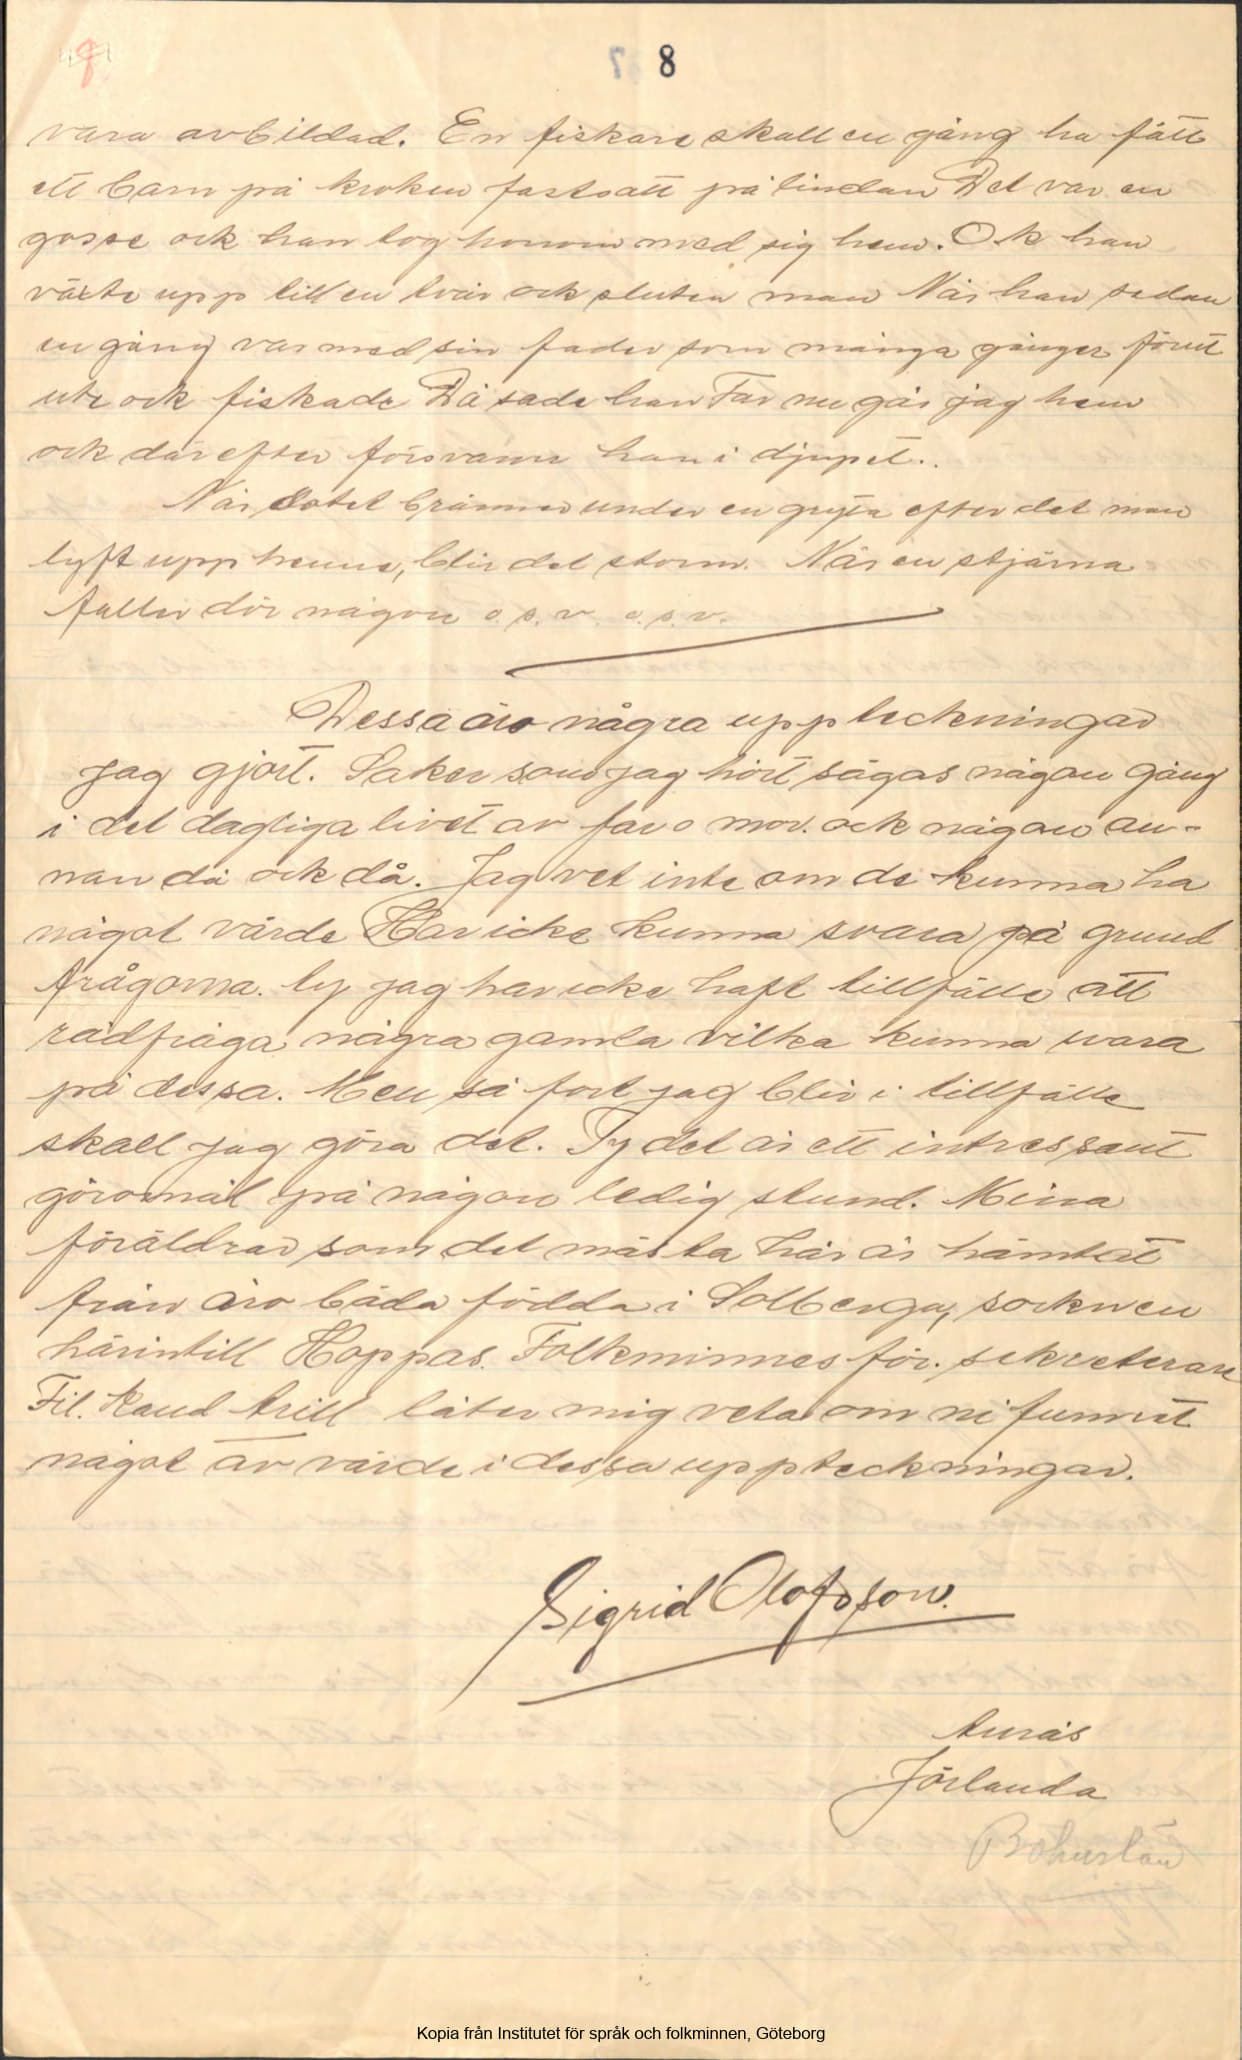 8
vara avbildad. En fiskare skall en gång ha fått
ett barn på kroken fastsatt på lindan Det var en
gosse ock han tog honom med sig hem. Ok han
växte upp till en tvär ock sluten man När han sedan
en gång var med sin fader som många gånger förut
ute ock fiskade Då sade han Far nu går jag hem
ock därefter försvann han i djupet.
När sotet bränner under en gryta efter det man
lyft upp henne, blir det storm. När en stjärna
faller dör någon o.s.v. o.s.v.
Dessa äro några uppteckningar
jag gjort. Saker som jag hört sägas någon gång
i det dagliga livet av far o mor. ock någon an-
nan då ock då. Jag vet inte om de kunna ha
något värde Har icke kunna svara på grund
frågorna. ty jag har icke haft tillfälle att
rådfråga några gamla vilka kunna svara
på dessa. Men så fort jag blir i tillfälle
skall jag göra det. Ty det är ett intressant
göromål på någon ledig stund. Mina
föräldrar som det mästa här är hämtat
från äro båda födda i Solberga, socknen
härintill Hoppas. Folkminnesför. sekreterare
Fil. Kand låter mig veta om ni funnit
något av värde i dessa uppteckningar.
Sigrid Olofsson.
Anrås
Jörlanda
Bohuslän
Kopia från Institutet för språk och folkminnen, Göteborg